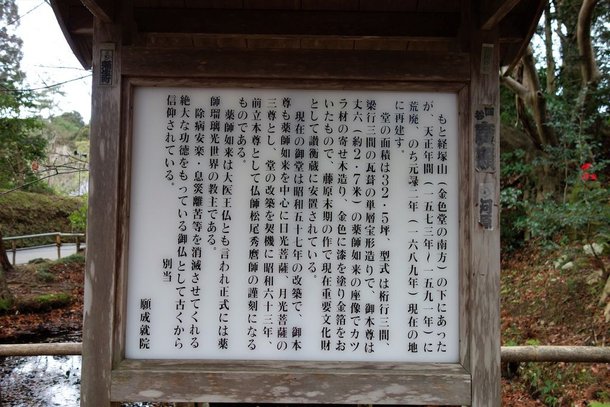 もと経塚山（金色堂の南方）の下にあった
が、天正年間（一五七三年〜一五九一年）に
荒廃、のち元禄二年（一六八九年）現在の地
に再建す。
堂の面積は３２・５坪、型式は桁行三間、
梁行三間の瓦葺の単層宝形造りで、御本尊は
丈六（約２・７米）の薬師如来の座像でカツ
ラ材の寄せ木造り、金色に漆を塗り金箔をお
いたもので、藤原末期の作で現在重要文化財
として讃衡蔵に安置されている。
現在の御堂は昭和五十七年の改築で、御本
尊も薬師如来を中心に日光菩薩、月光菩薩の
三尊とし、堂の改築を契機に昭和六十三年、
前立本尊として仏師松尾秀麿師の謹刻になる
ものである。
薬師如来は大医王仏とも言われ正式には薬
師瑠璃光世界の教主である。
除病安楽・息災離苦等を消滅させてくれる
絶大な功徳をもっている御仏として古くから
信仰されている。
別当
願成就院